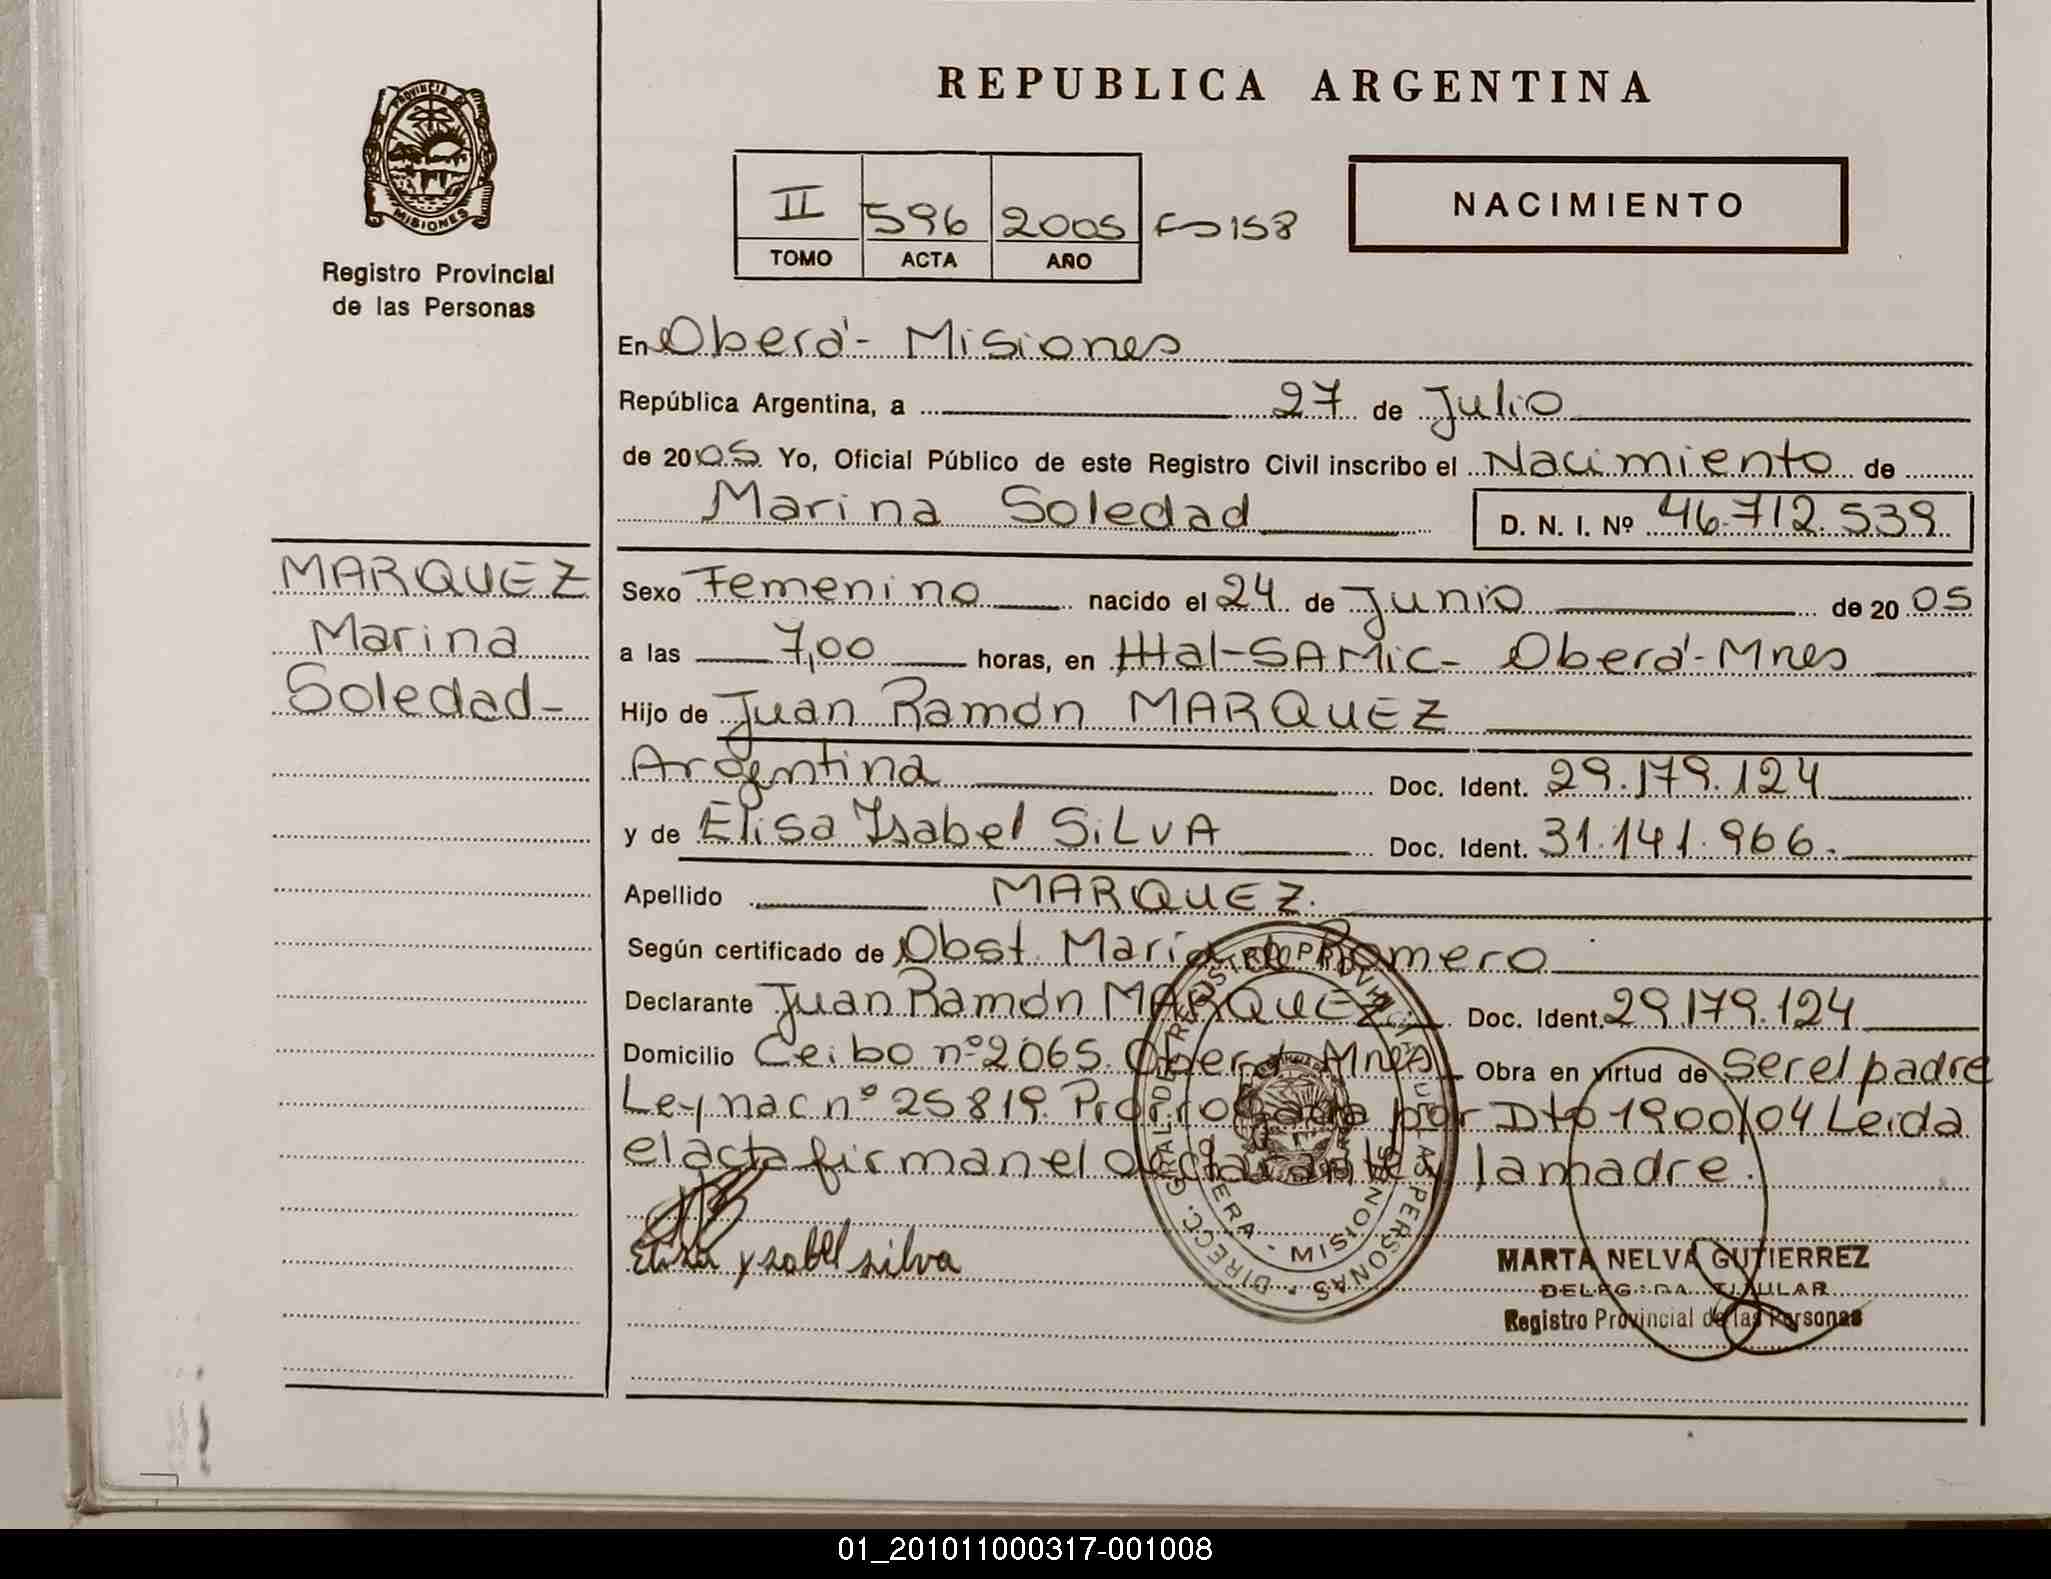 PROVINCIA DE
MISIONES
Registro Provincial
de las Personas
REPUBLICA ARGENTINA
II 596 2005 Fº 158
TOMO ACTA AÑO
NACIMIENTO
En Oberá - Misiones
República Argentina, a 27 de Julio
de 2005 Yo, Oficial Público de este Registro Civil inscribo el Nacimiento de
Marina Soledad D. N. I. Nº 46.712.539
MARQUEZ
Marina
Soledad -
Sexo Femenino nacido el 24 de Junio de 2005
a las 7,00 horas, en Htal-SAMIC- Oberá-Mnes
Hijo de Juan Ramón MARQUEZ
Argentina Doc. Ident. 29.179.124
y de Elisa Ysabel SILVA Doc. Ident. 31.141.966.
Apellido MARQUEZ.
Según certificado de Obst. María de Romero
Declarante Juan Ramón MARQUEZ Doc. Ident. 29.179.124
Domicilio Ceibo nº 2065. Oberá Mnes Obra en virtud de Ser el padre
Ley nac nº 25819. Prorrogada por Dto 1900/04 Leida
el acta firman el declarante y la madre.
Elisa Ysabel silva
DIRECC. GRAL. DE REGISTRO PROVINCIAL DE LAS PERSONAS
OBERA - MISIONES
MARTA NELVA GUTIERREZ
DELEGADA TITULAR
Registro Provincial de las Personas
01_201011000317-001008